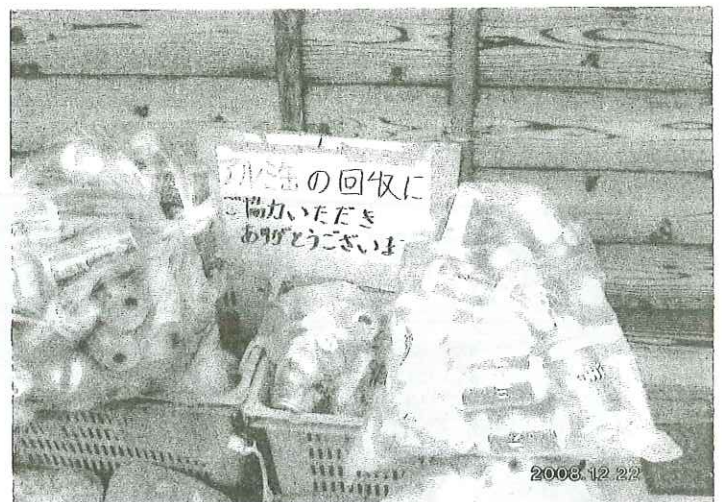 アルミ缶の回収に
ご協力いただき
ありがとうございま
2008.12.22